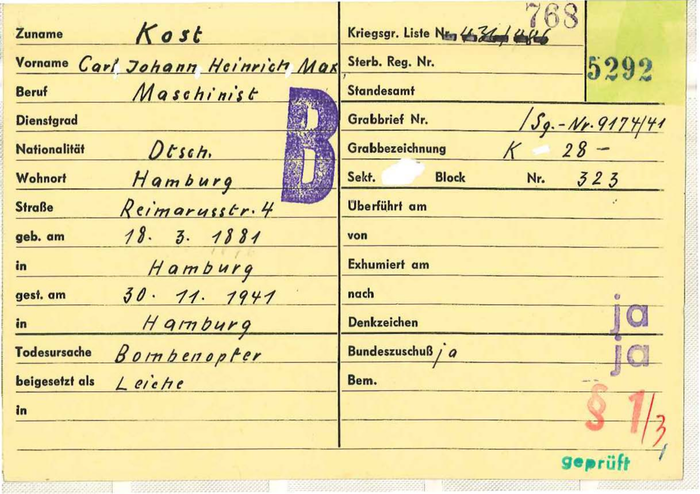 768
5292
Zuname Kost
Vorname Carl Johann Heinrich Max
Beruf Maschinist
Dienstgrad
Nationalität Dtsch.
Wohnort Hamburg
Straße Reimarusstr. 4
geb. am 18. 3. 1881
in Hamburg
gest. am 30. 11. 1941
in Hamburg
Todesursache Bombenopfer
beigesetzt als Leiche
in
B
Kriegsgr. Liste Nr.
Sterb. Reg. Nr.
Standesamt
Grabbrief Nr. /Sg.-Nr. 9174/41
Grabbezeichnung K 28 -
Sekt. Block Nr. 323
Überführt am
von
Exhumiert am
nach
Denkzeichen ja
Bundeszuschuß ja ja
Bem.
§ 1/3
geprüft